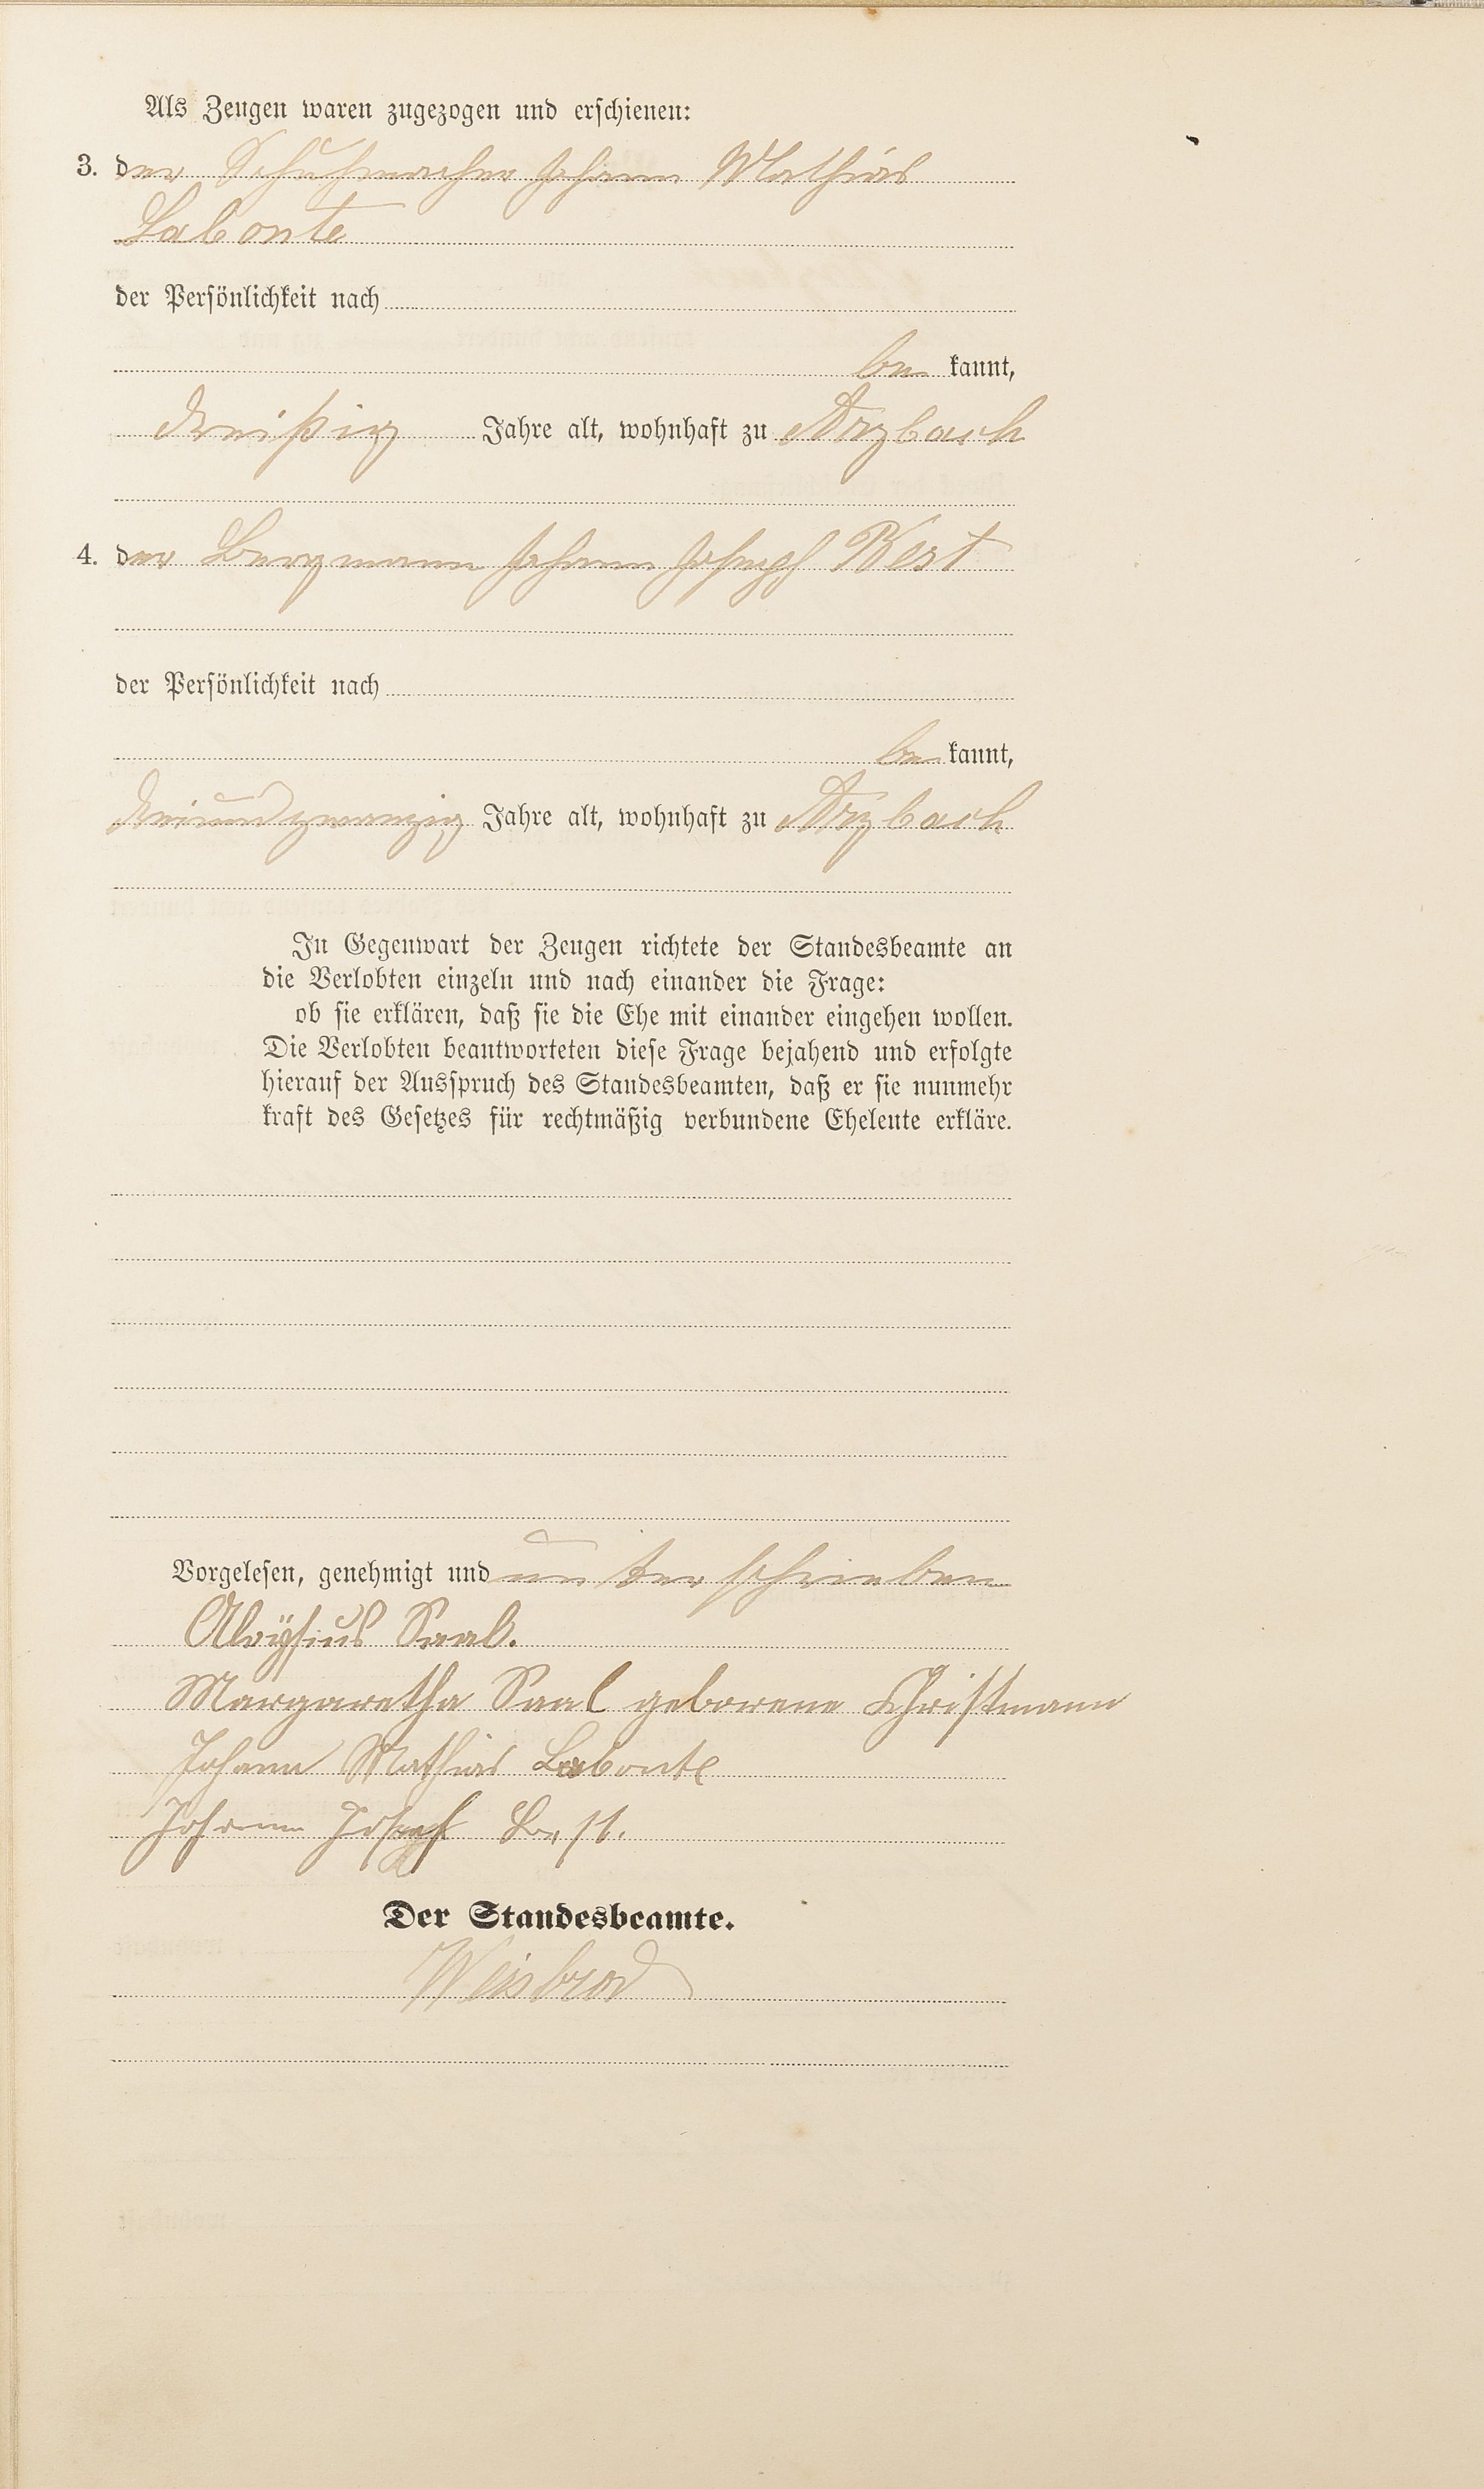 Als Zeugen waren zugezogen und erschienen:
3. der Schuhmacher Johann Mathias
Labonte
der Persönlichkeit nach
be kannt,
dreißig Jahre alt, wohnhaft zu Arzbach
4. der Bergmann Johann Joseph Best
der Persönlichkeit nach
be kannt,
dreiundzwanzig Jahre alt, wohnhaft zu Arzbach
In Gegenwart der Zeugen richtete der Standesbeamte an
die Verlobten einzeln und nach einander die Frage:
ob sie erklären, daß sie die Ehe mit einander eingehen wollen.
Die Verlobten beantworteten diese Frage bejahend und erfolgte
hierauf der Ausspruch des Standesbeamten, daß er sie nunmehr
kraft des Gesetzes für rechtmäßig verbundene Eheleute erkläre.
Vorgelesen, genehmigt und unterschrieben
Aloÿsius Saal.
Margaretha Saal geborene Christmann
Johann Mathias Labonte
Johann Joseph Best.
Der Standesbeamte.
Weisbrod